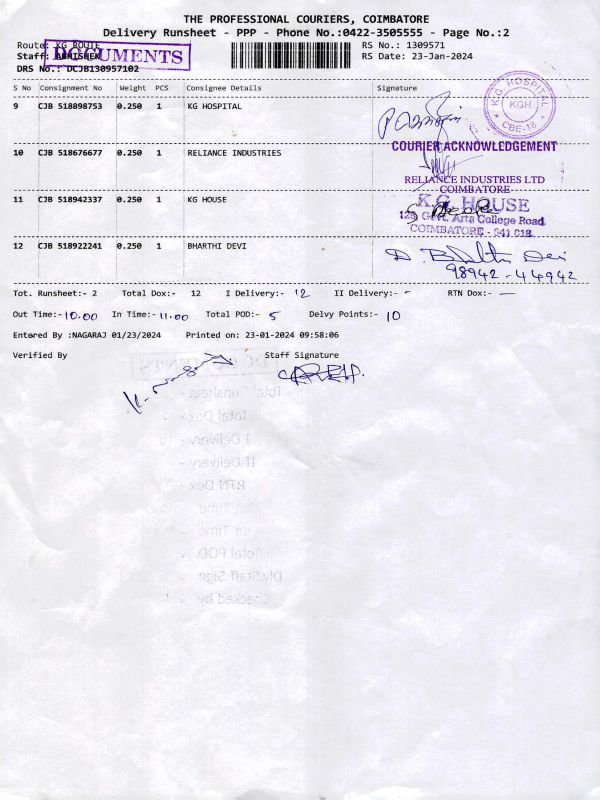 THE PROFESSIONAL COURIERS, COIMBATORE
Delivery Runsheet - PPP - Phone No.:0422-3505555 - Page No.:2
Route: KG ROUTE
RS No.: 1309571
Staff: ABHISHEK
DOCUMENTS
RS Date: 23-Jan-2024
DRS No.: DCJB130957102
S No Consignment No Weight PCS Consignee Details Signature
9 CJB 518898753 0.250 1 KG HOSPITAL
K.G. HOSPITAL
KGH
CBE-18
COURIER ACKNOWLEDGEMENT
10 CJB 518676677 0.250 1 RELIANCE INDUSTRIES
RELIANCE INDUSTRIES LTD
COIMBATORE
11 CJB 518942337 0.250 1 KG HOUSE
K.G. HOUSE
128, Govt. Arts College Road
COIMBATORE - 641 018.
12 CJB 518922241 0.250 1 BHARTHI DEVI
D. Bharthi Devi
98942-44942
Tot. Runsheet:- 2 Total Dox:- 12 I Delivery:- 12 II Delivery:- - RTN Dox:- -
Out Time:- 10.00 In Time:- 11.00 Total POD:- 5 Delvy Points:- 10
Entered By :NAGARAJ 01/23/2024 Printed on: 23-01-2024 09:58:06
Verified By Staff Signature